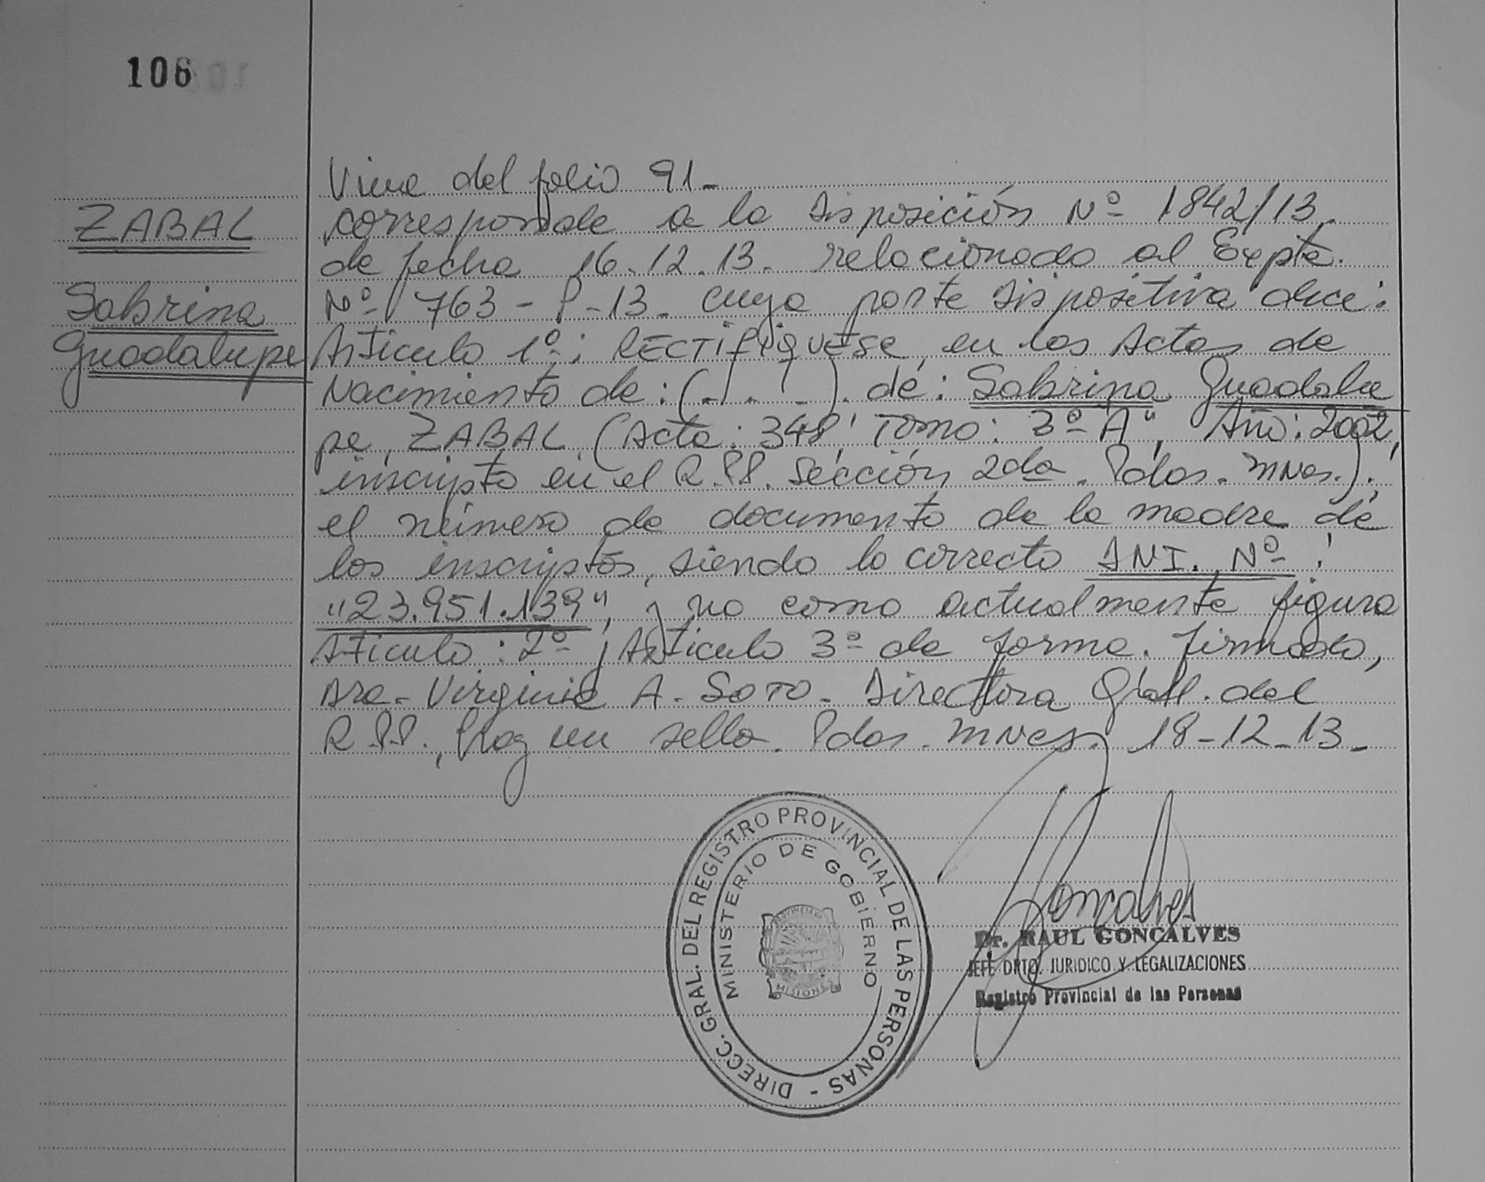 106
ZABAL
Sabrina
Guadalupe
Viene del folio 91-
corresponde a la Disposición Nº 1842/13.
de fecha 16.12.13. relacionado al Expte.
Nº 763-P-13. cuya parte dispositiva dice:
Articulo 1º: RECTIFIQUESE, en las Actas de
Nacimiento de: (-/-/-). de: Sabrina Guadalu
pe ZABAL (Acta: 348, Tomo: 3º A", Año: 2002,
inscripta en el R.PP. Sección 2da. Pdas. Mnes.).
el número de documento de la madre de
los inscriptos, siendo lo correcto DNI. Nº:
"23.951.139", y no como actualmente figura
Articulo: 2º y Articulo 3º de forma. Firmado,
Dra. Virginia A. SOTO. Directora Gral. del
R.PP., Hay un sello. Pdas. Mnes. 18-12-13-
DIRECC. GRAL. DEL REGISTRO PROVINCIAL DE LAS PERSONAS -
MINISTERIO DE GOBIERNO
PROVINCIA DE
MISIONES
Goncalves
Dr. RAUL GONCALVES
JEFE DPTO. JURIDICO Y LEGALIZACIONES
Registro Provincial de las Personas